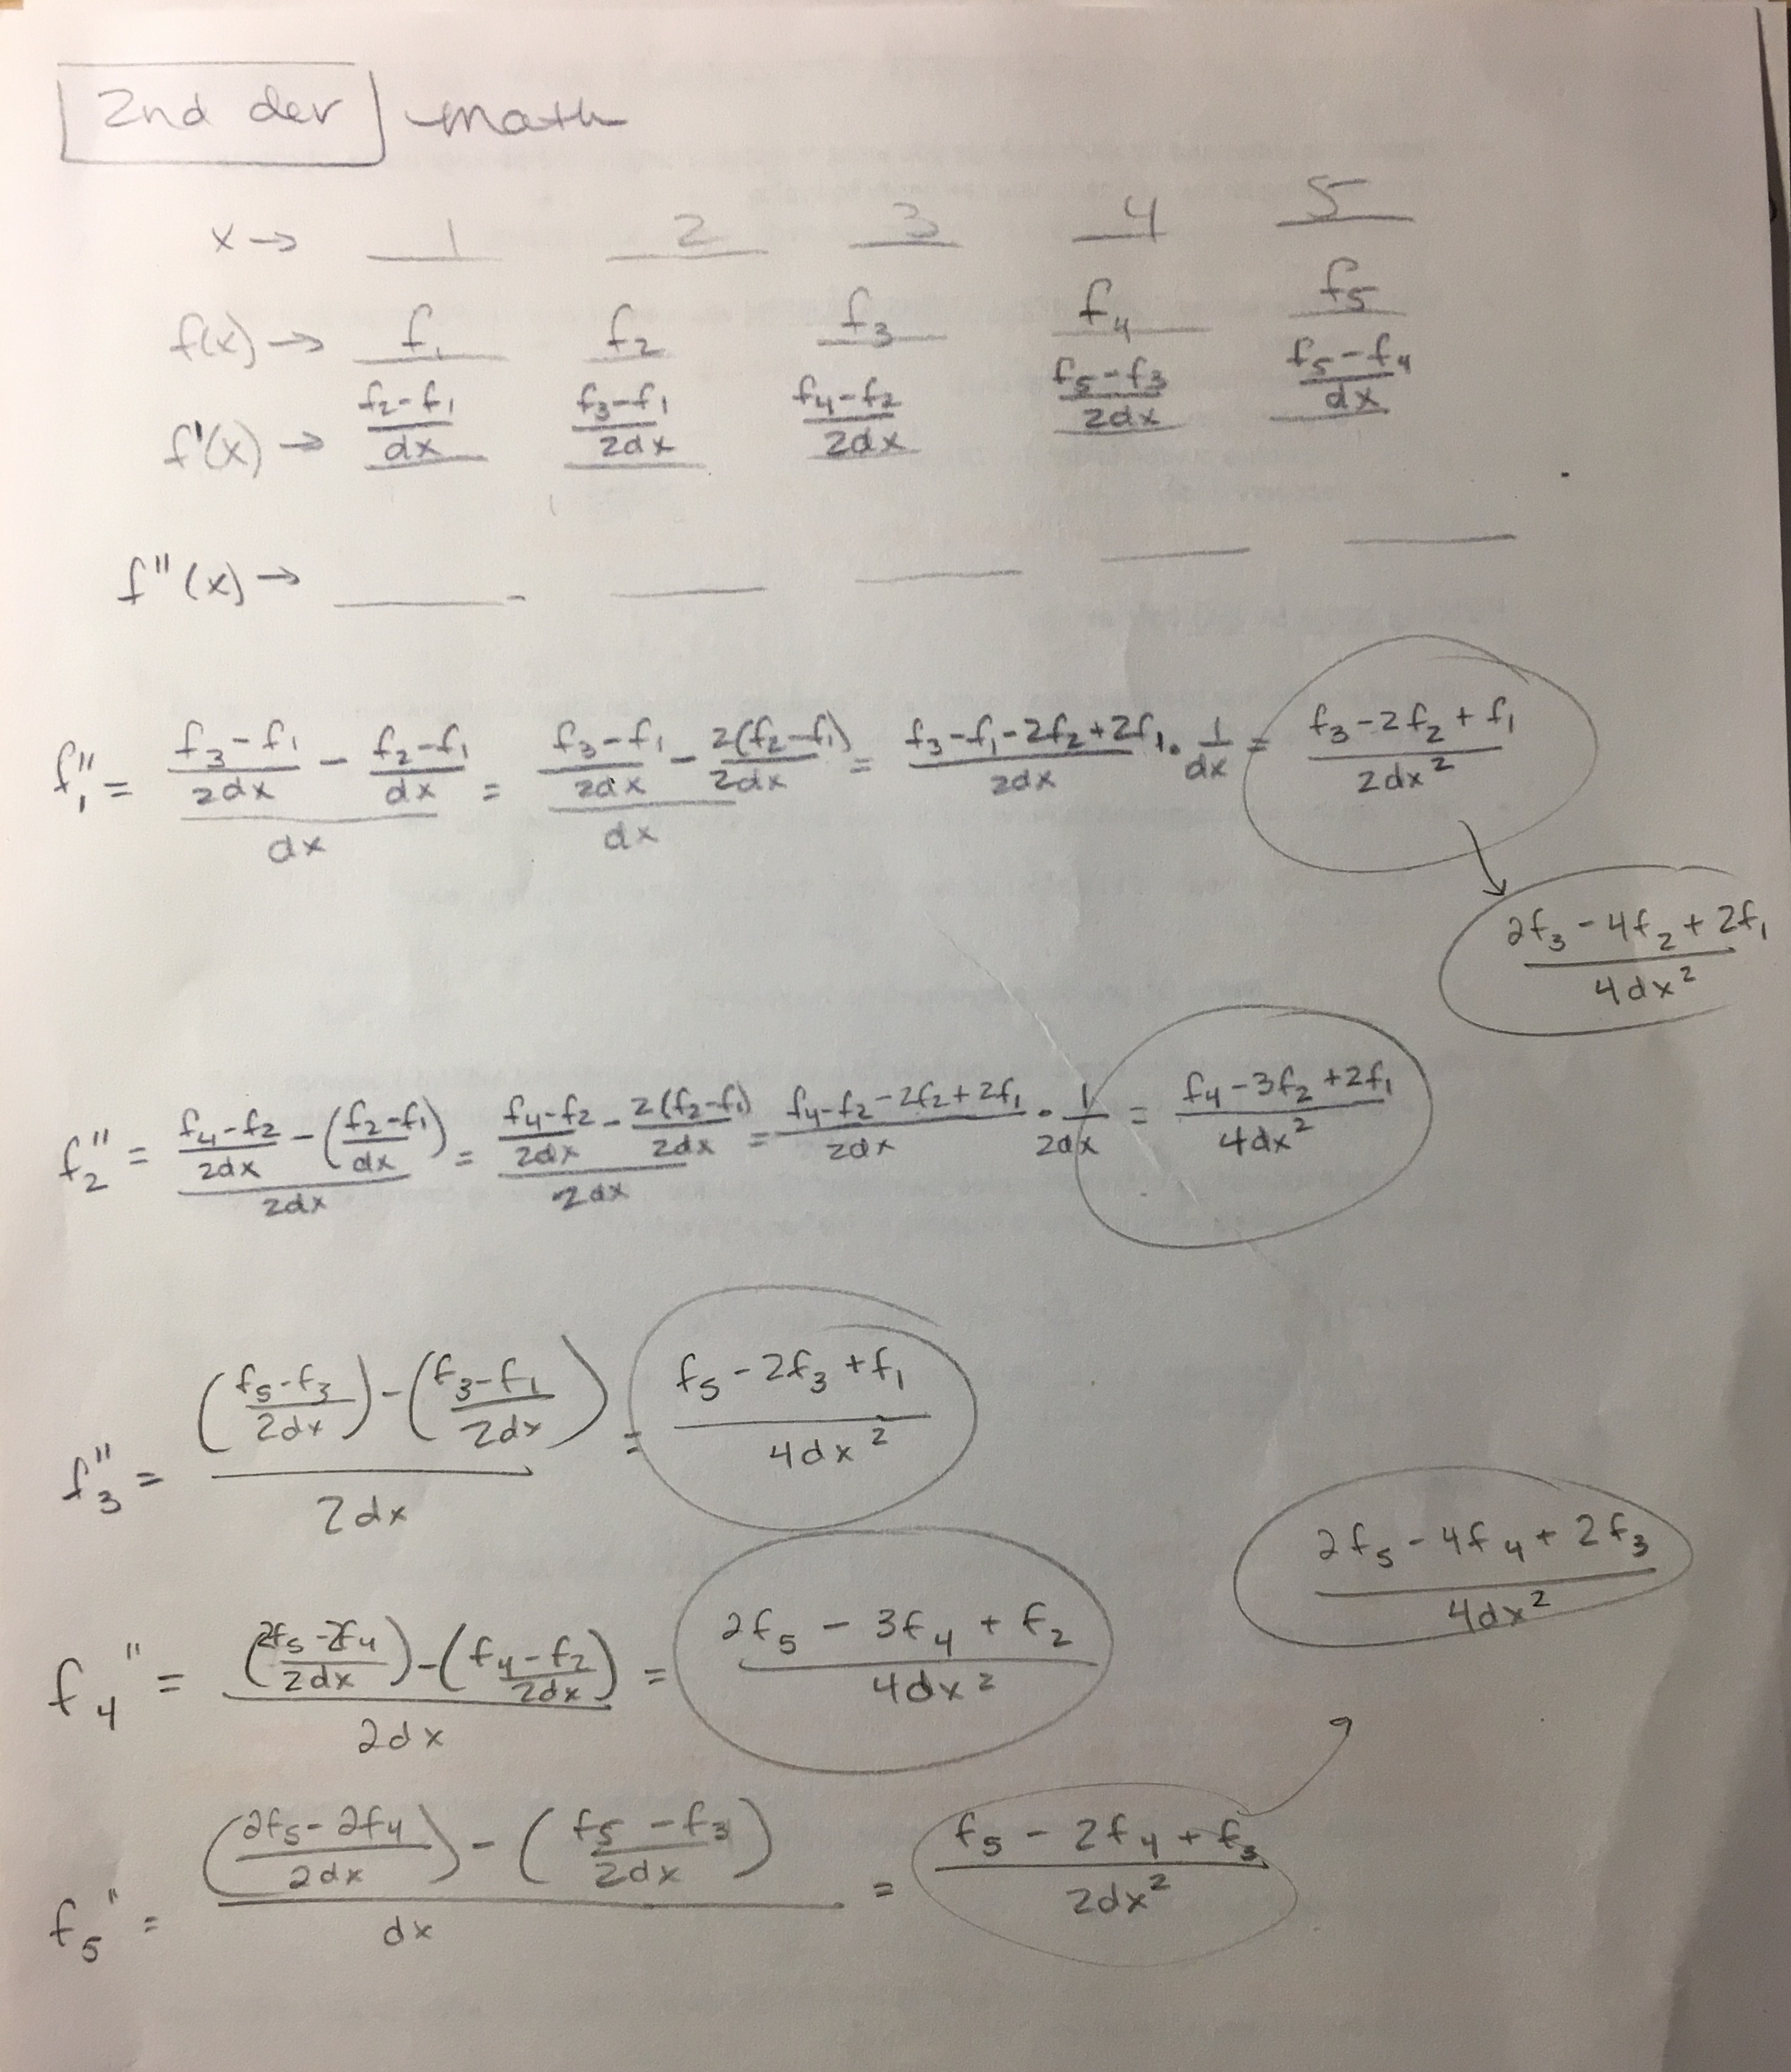 2nd der math
x → 1 2 3 4 5
f(x) → f₁ f₂ f₃ f₄ f₅
f'(x) → (f₂-f₁)/dx (f₃-f₁)/2dx (f₄-f₂)/2dx (f₅-f₃)/2dx (f₅-f₄)/dx
f''(x) →
f₁'' = ((f₃-f₁)/2dx - (f₂-f₁)/dx)/dx = ((f₃-f₁)/2dx - 2(f₂-f₁)/2dx)/dx = (f₃-f₁-2f₂+2f₁)/2dx · 1/dx = (f₃-2f₂+f₁)/2dx²
(2f₃-4f₂+2f₁)/4dx²
f₂'' = ((f₄-f₂)/2dx - ((f₂-f₁)/dx))/2dx = ((f₄-f₂)/2dx - 2(f₂-f₁)/2dx)/2dx = (f₄-f₂-2f₂+2f₁)/2dx · 1/2dx = (f₄-3f₂+2f₁)/4dx²
f₃'' = (((f₅-f₃)/2dx) - ((f₃-f₁)/2dx))/2dx = (f₅-2f₃+f₁)/4dx²
f₄'' = (((2f₅-2f₄)/2dx) - ((f₄-f₂)/2dx))/2dx = (2f₅-3f₄+f₂)/4dx²
(2f₅-4f₄+2f₃)/4dx²
f₅'' = (((2f₅-2f₄)/2dx) - ((f₅-f₃)/2dx))/dx = (f₅-2f₄+f₃)/2dx²